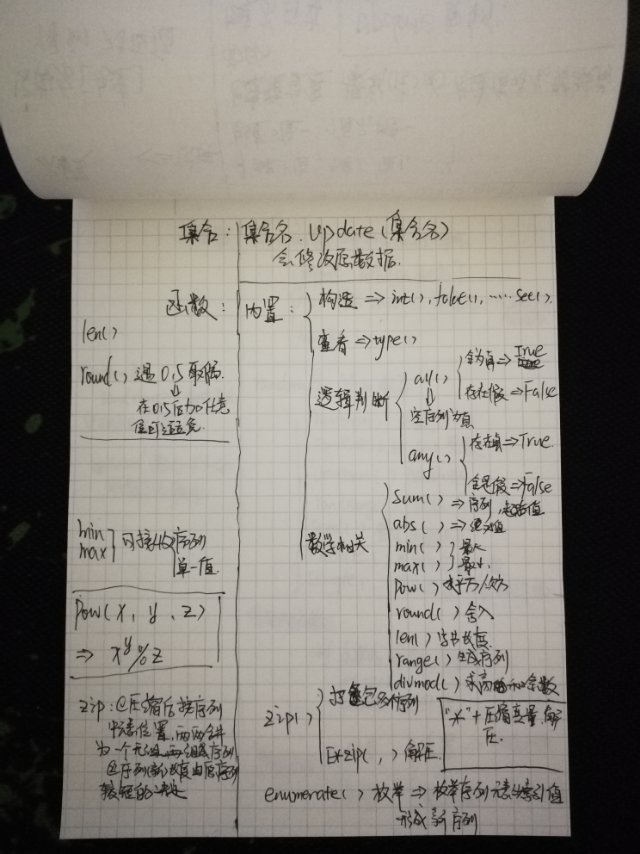 集合: 集合名.update(集合名)
会修改原数据.
函数: 内置:
构造 => int(), folat(), ......set().
查看 => type()
逻辑判断
all()
全为真 => True
存在假 => False
空序列为真
any()
存在真 => True.
全是假 => False
数学相关
sum() => 序列,
abs() => 绝对值
min() } 最大
max() } 最小.
pow() 求平方/次方
round() 舍入
len() 长度
range() 生成序列
divmod() 求商和余数
zip()
打包多个序列
"*"+压缩变量,解
压.
zip( , ) 解压.
enumerate() 枚举 => 枚举序列元素的索引值
形成新序列
len()
round() 遇0.5取偶.
在0.5后加任意
值可避免.
min
max } 可接收序列
单一值.
Pow(x, y, z)
=> x^y%z
zip: ①压缩后按序列
中元素位置,两两合并
为一个元组,
②序列(新)长度由原序列
较短的一决定